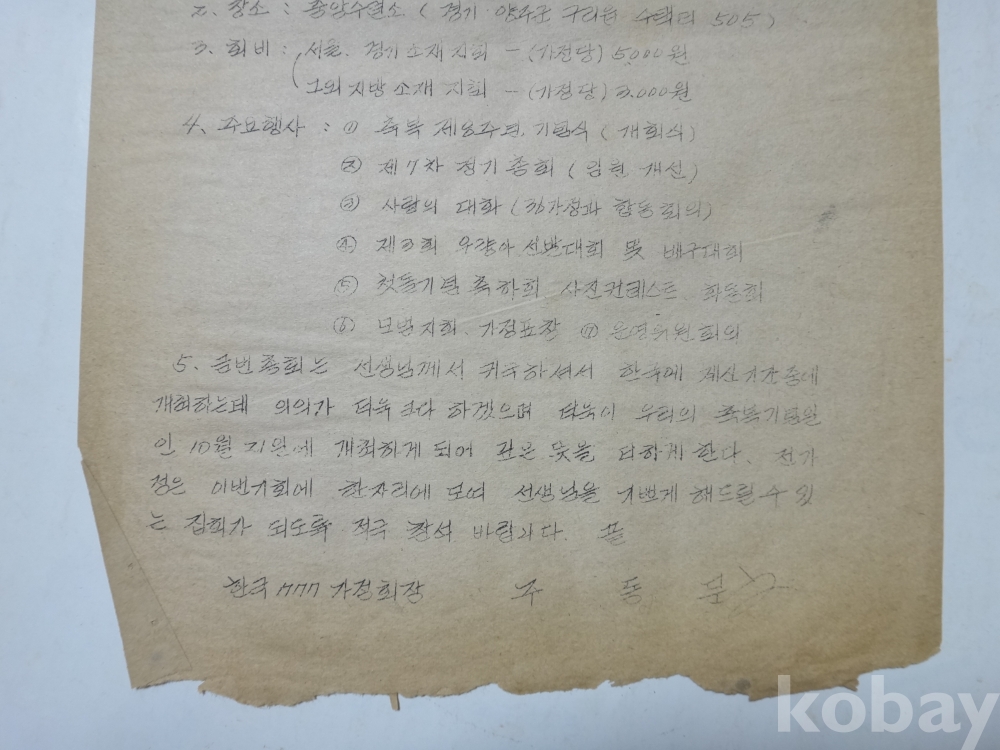 2. 장소 : 중앙수련소 ( 경기 양주군 구리면 수택리 505 )
3. 회비 : 서울. 경기 소재 지회 - (가정당) 5,000원
그외 지방 소재 지회 - (가정당) 3,000원
4. 주요행사 : ① 축복 제8주년 기념식 ( 개회식 )
② 제 7차 정기총회 ( 임원 개선 )
③ 사랑의 대화 (36가정과 합동회의)
④ 제3회 우량아 선발대회 및 배구대회
⑤ 첫돌기념 축하회. 사진컨테스트. 화동회
⑥ 모범지회. 가정표창 ⑦ 운영위원회의
5. 금번총회는 선생님께서 귀국하셔서 한국에 계신 기간중에
개최하는데 의의가 더욱 크다 하겠으며 더욱이 우리의 축복기념일
인 10월 21일에 개최하게 되어 깊은 뜻을 더하게 한다. 전가
정은 이번기회에 한자리에 모여 선생님을 기쁘게 해드릴 수 있
는 집회가 되도록 적극 참석 바랍니다. 끝
한국 777 가정회장 주 동 문
kobay